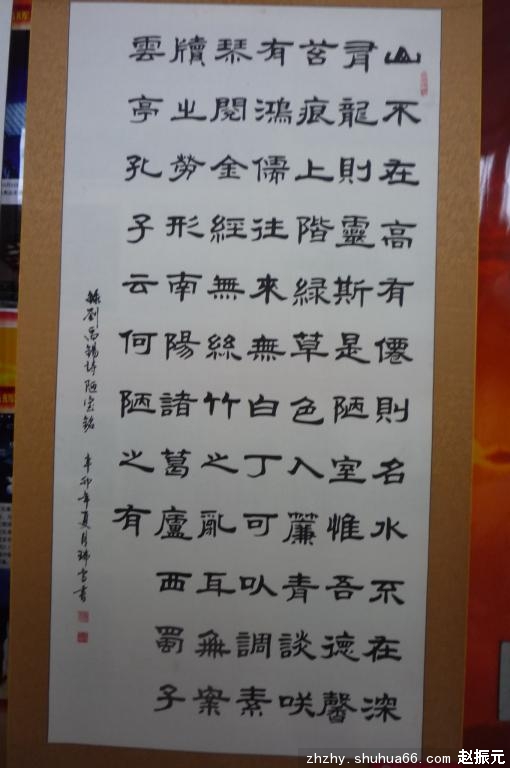 山不在高有僊則名水不在深
有龍則靈斯是陋室惟吾德馨
苔痕上階綠草色入簾青談咲
有鴻儒往來無白丁可㕥調素
琴閱金經無絲竹之亂耳無案
牘之勞形南陽諸葛廬西蜀子
雲亭孔子云何陋之有
錄劉禹錫詩陋室銘 辛卯年夏月瑞雪書
zhzhy.shuhua66.com 赵振元